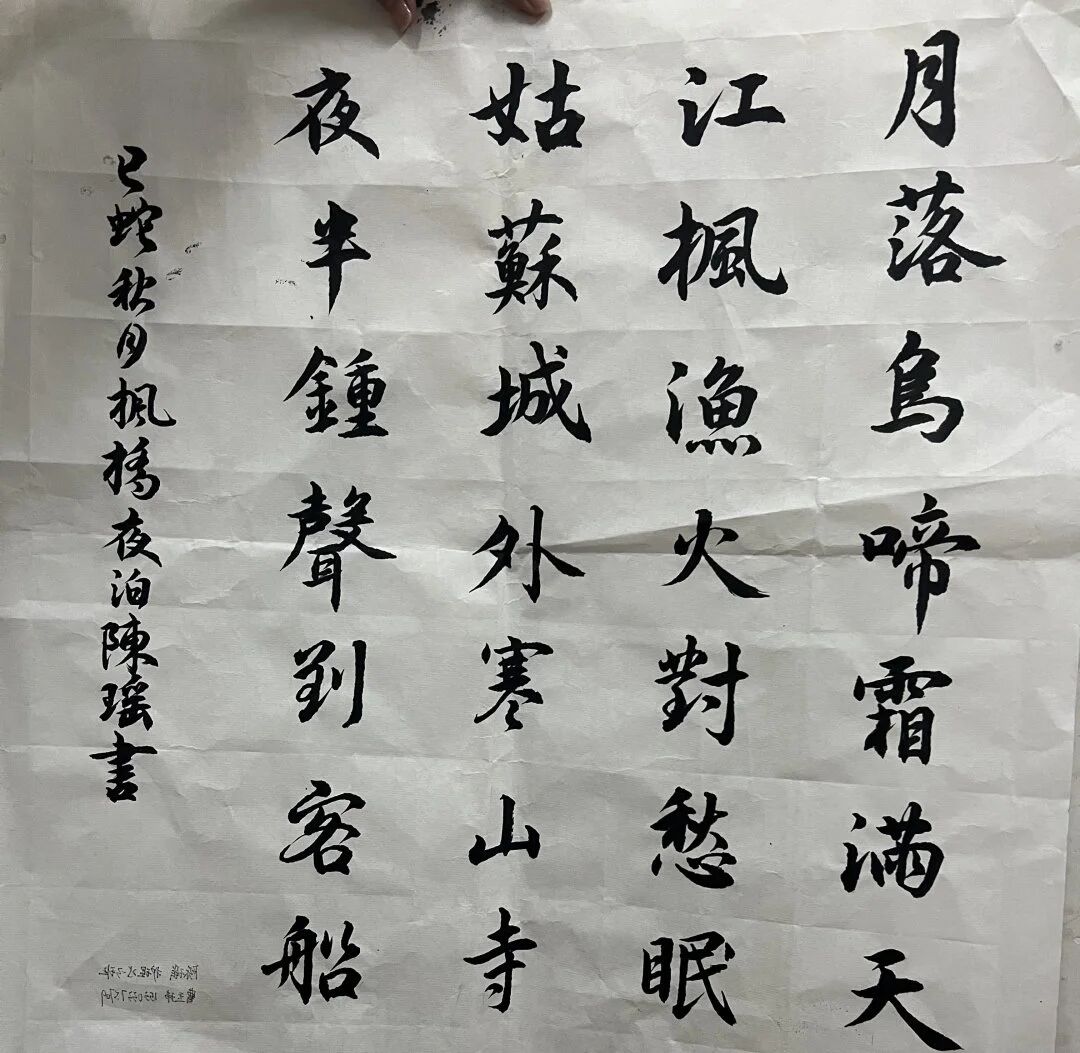 月落烏啼霜滿天
江楓漁火對愁眠
姑蘇城外寒山寺
夜半鍾聲到客船
巳蛇秋月楓橋夜泊陳瑶書